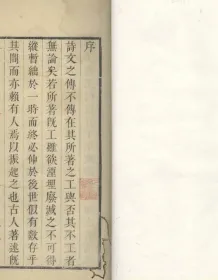 序
詩文之傳不傳在其所著之工與否其不工者
無論矣若所著既工雖欲湮埋磨滅之不可得
縱暫絀於一時而終必伸於後世假有數存乎
其間而亦賴有人焉以振起之也古人著述既